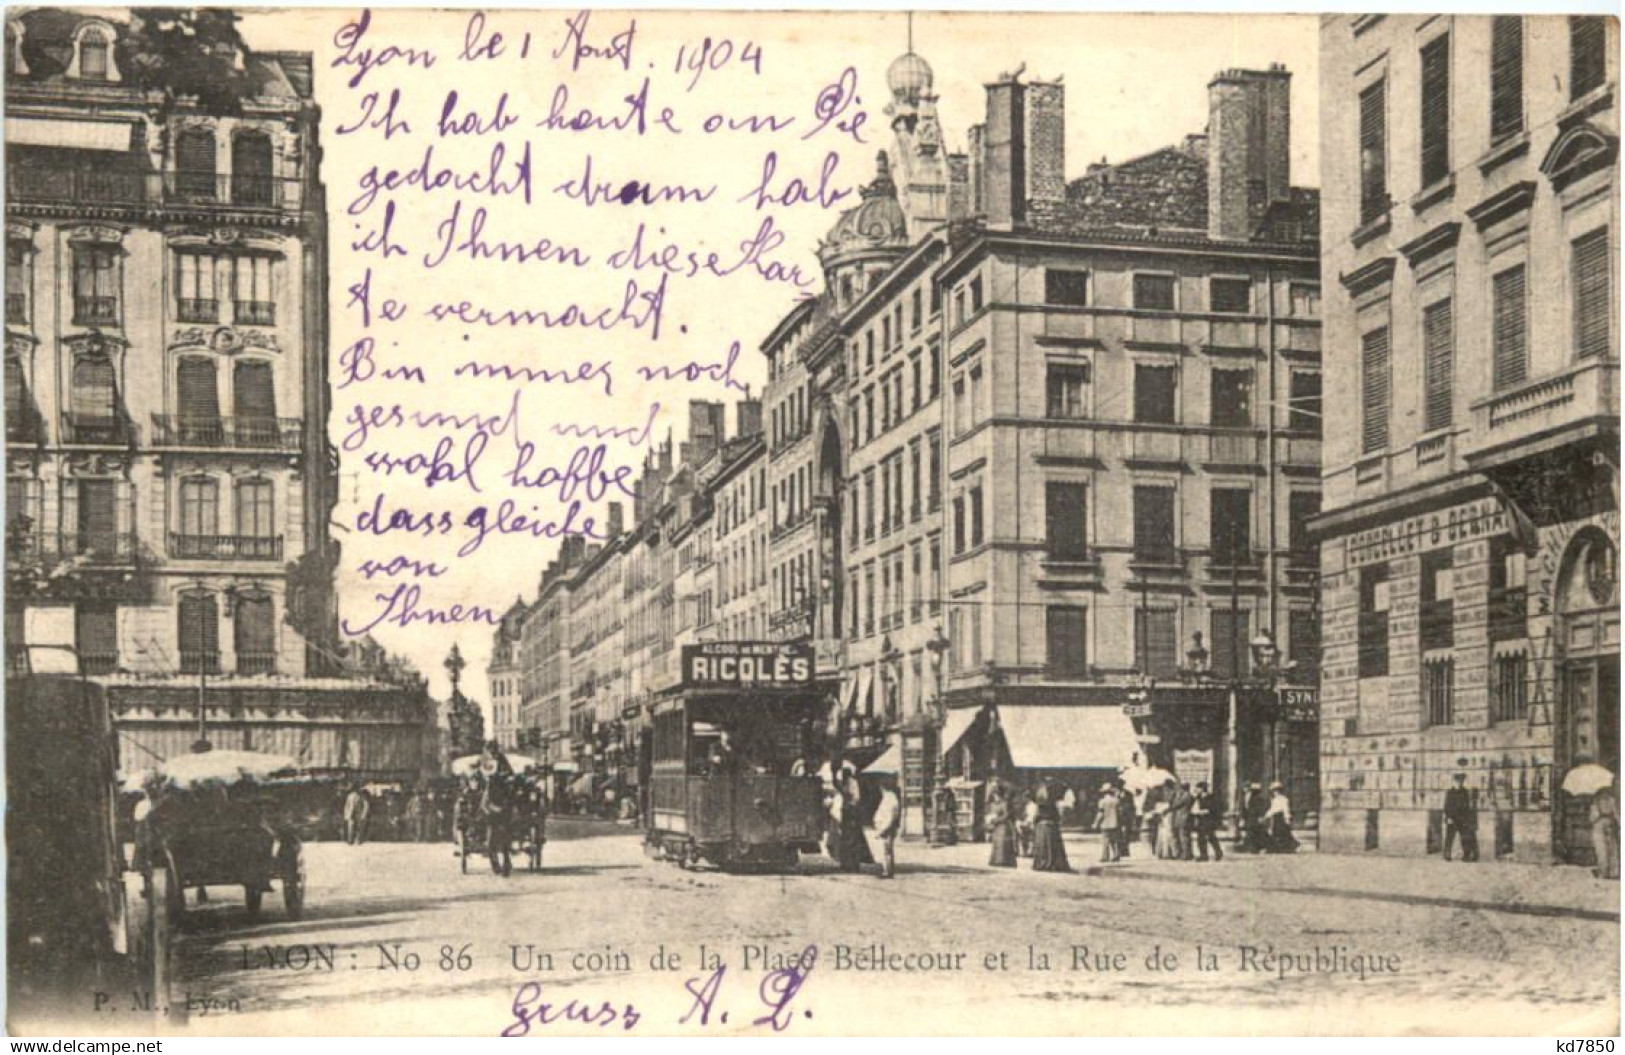 Lyon le 1 Aout. 1904
Ich hab heute an Sie
gedacht drum hab
ich Ihnen diese Kar
te vermacht.
Bin immer noch
gesund und
wohl hoffe
dassgleiche
von
Ihnen
ALCOOL DE MENTHE DE
RICQLÈS
SYN
LYON : No 86 Un coin de la Place Bellecour et la Rue de la République
P. M., Lyon
Gruss A. L.
kd7850